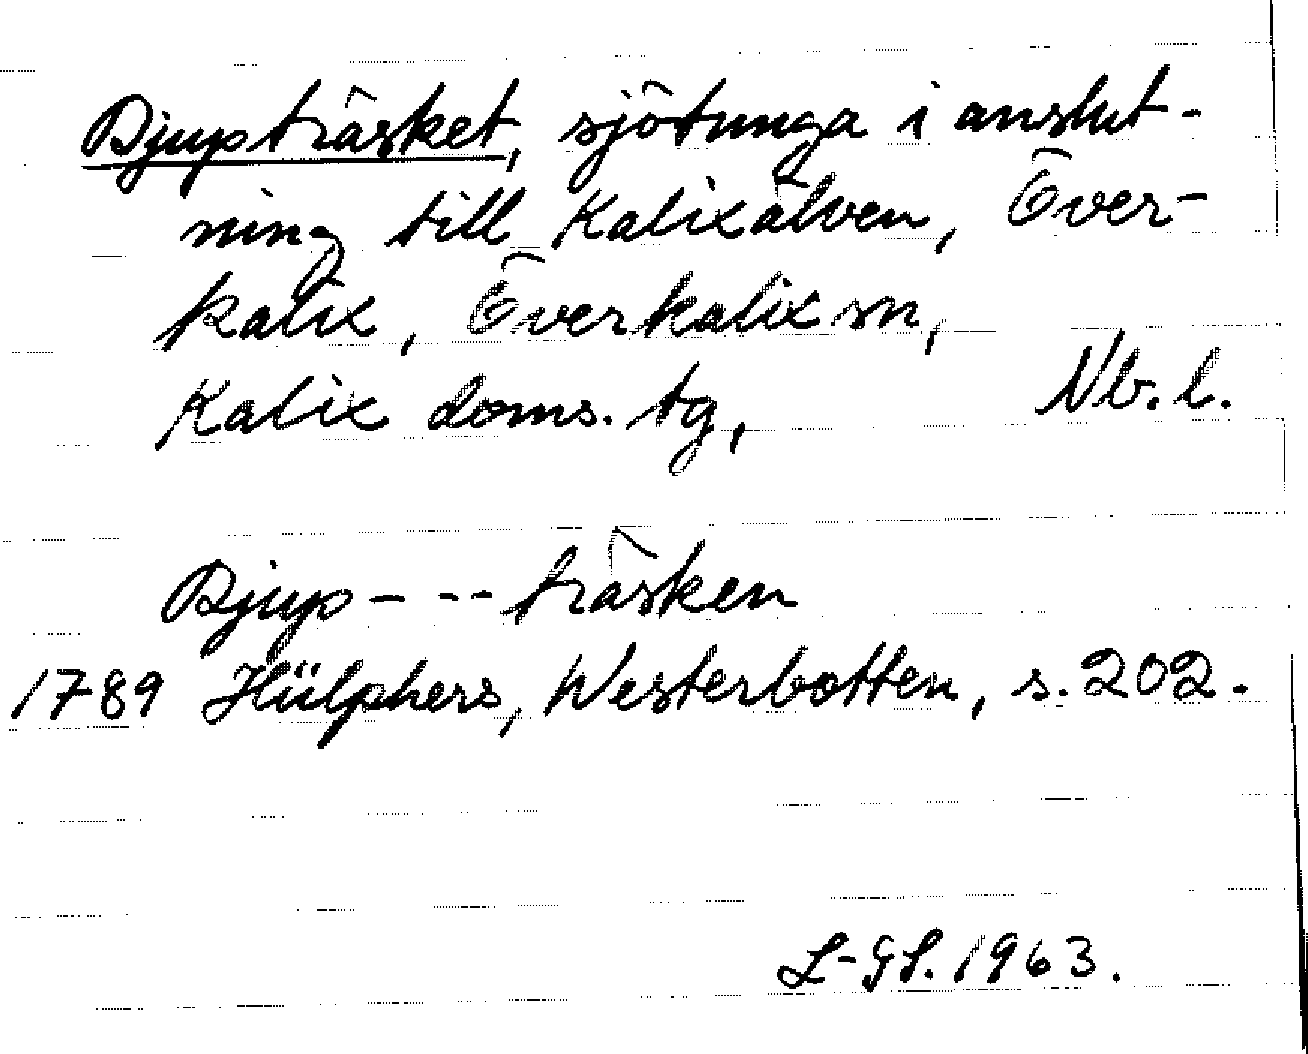 Djupträsket, sjötunga i anslut-
ning till Kalixälven, Över-
kalix, Överkalix sn,
Kalix doms. tg, Nb. l.
Djup - - - träsken
1789 Hülphers, Westerbotten, s. 202.
L-GL. 1963.